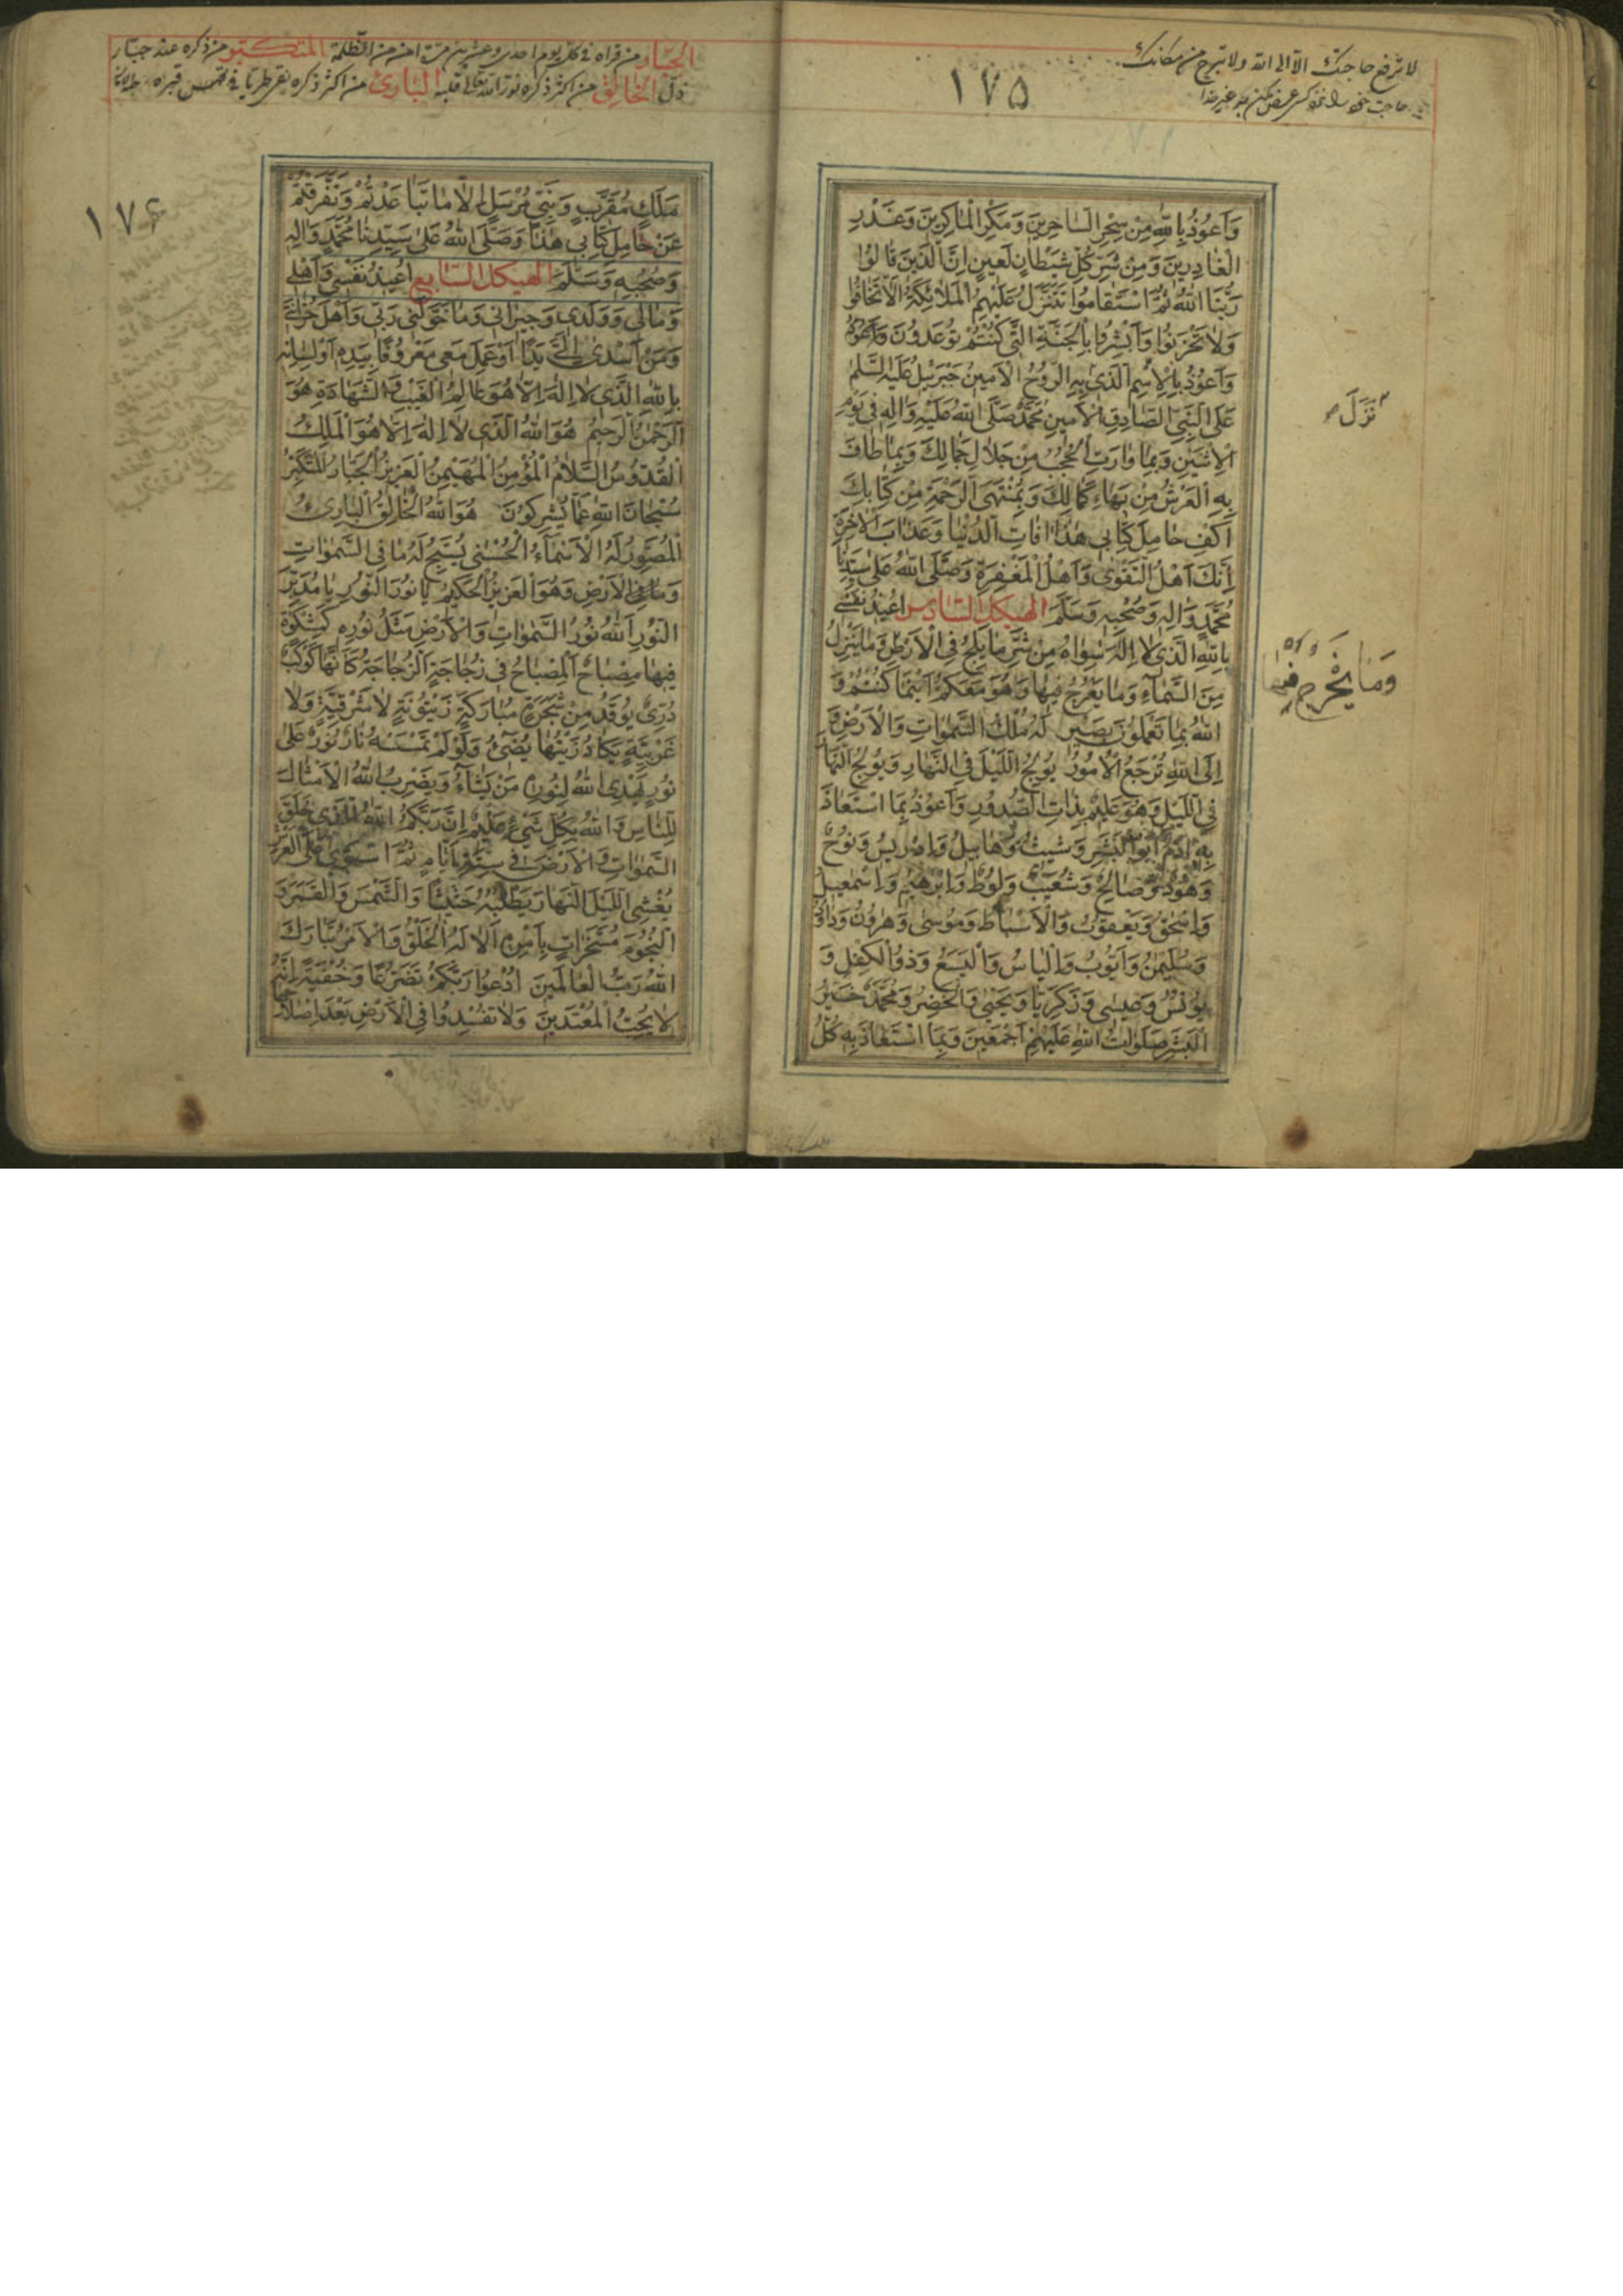 لا ترفع حاجتك الا الى الله ولا تبرح من مكانك
١٧٥
وَاَعُوذُ بِاللّٰهِ مِنْ سِحْرِ السَّاحِرِينَ وَمَكْرِ الْمَاكِرِينَ وَغَدْرِ
الْغَادِرِينَ وَمِنْ شَرِّ كُلِّ شَيْطَانٍ لَعِينٍ اِنَّ الَّذِينَ قَالُوا
رَبُّنَا اللّٰهُ ثُمَّ اسْتَقَامُوا تَتَنَزَّلُ عَلَيْهِمُ الْمَلَائِكَةُ اَلَّا تَخَافُوا
وَلَا تَحْزَنُوا وَاَبْشِرُوا بِالْجَنَّةِ الَّتِي كُنْتُمْ تُوعَدُونَ
وَاَعُوذُ بِالْاِسْمِ الَّذِي بِهِ الرُّوحُ الْاَمِينُ جَبْرَئِيلُ عَلَيْهِ السَّلَمُ
نَزَلَ
عَلَى النَّبِيِّ الصَّادِقِ الْاَمِينِ مُحَمَّدٍ صَلَّى اللّٰهُ عَلَيْهِ وَاٰلِهِ فِي يَوْمِ
الْاِثْنَيْنِ وَبِمَا وَارَتِ الْحُجُبُ مِنْ جَلَالِ جَمَالِكَ وَبِمَا طَافَ
بِهِ الْعَرْشُ مِنْ بَهَاءِ كَمَالِكَ وَبِمُنْتَهَى الرَّحْمَةِ مِنْ كِتَابِكَ
اَكْفِ حَامِلَ كِتَابِي هٰذَا اٰفَاتِ الدُّنْيَا وَعَذَابَ الْاٰخِرَةِ
اِنَّكَ اَهْلُ التَّقْوٰى وَاَهْلُ الْمَغْفِرَةِ وَصَلَّى اللّٰهُ عَلٰى سَيِّدِنَا
مُحَمَّدٍ وَاٰلِهِ وَصَحْبِهِ وَسَلَّمَ الهيكل السادس اُعِيذُ نَفْسِي
بِاللّٰهِ الَّذِي لَا اِلٰهَ سِوَاهُ مِنْ شَرِّ مَا يَلِجُ فِي الْاَرْضِ وَمَا يَنْزِلُ
وَمَا يَخْرُجُ
مِنَ السَّمَاءِ وَمَا يَعْرُجُ فِيهَا وَهُوَ مَعَكُمْ اَيْنَمَا كُنْتُمْ وَ
اللّٰهُ بِمَا تَعْمَلُونَ بَصِيرٌ لَهُ مُلْكُ السَّمٰوَاتِ وَالْاَرْضِ وَ
اِلَى اللّٰهِ تُرْجَعُ الْاُمُورُ يُولِجُ اللَّيْلَ فِي النَّهَارِ وَيُولِجُ النَّهَارَ
فِي اللَّيْلِ وَهُوَ عَلِيمٌ بِذَاتِ الصُّدُورِ وَاَعُوذُ بِمَا اسْتَعَاذَ
بِهِ اٰدَمُ اَبُو الْبَشَرِ وَشِيثُ وَهَابِيلُ وَاِدْرِيسُ وَنُوحٌ
وَهُودٌ وَصَالِحٌ وَشُعَيْبٌ وَلُوطٌ وَاِبْرٰهِيمُ وَاِسْمٰعِيلُ
وَاِسْحٰقُ وَيَعْقُوبُ وَالْاَسْبَاطُ وَمُوسٰى وَهٰرُونُ وَدَاوُدُ
وَسُلَيْمٰنُ وَاَيُّوبُ وَاِلْيَاسُ وَالْيَسَعُ وَذُو الْكِفْلِ وَ
يُونُسُ وَعِيسٰى وَزَكَرِيَّا وَيَحْيٰى وَالْخِضْرُ وَمُحَمَّدٌ خَيْرُ
الْبَشَرِ صَلَوَاتُ اللّٰهِ عَلَيْهِمْ اَجْمَعِينَ وَبِمَا اسْتَعَاذَ بِهِ كُلُّ
الجبار من قراه في كل يوم احدى وعشرين مرة امن من الظلمة المتكبر من ذكره عند جبار
ذل الخالق من اكثر ذكره نور الله تعالى قلبه البارئ من اكثر ذكره
١٧٦
مَلَكٍ مُقَرَّبٍ وَنَبِيٍّ مُرْسَلٍ اِلَّا مَا تَبَاعَدْتُمْ وَتَفَرَّقْتُمْ
عَنْ حَامِلِ كِتَابِي هٰذَا وَصَلَّى اللّٰهُ عَلٰى سَيِّدِنَا مُحَمَّدٍ وَاٰلِهِ
وَصَحْبِهِ وَسَلَّمَ الهيكل السابع اُعِيذُ نَفْسِي وَاَهْلِي
وَمَالِي وَوَلَدِي وَجِيرَانِي وَمَا خَوَّلَنِي رَبِّي وَاَهْلَ حُزَانَتِي
وَمَنْ اَسْدٰى اِلَيَّ يَدًا اَوْ عَمِلَ مَعِي مَعْرُوفًا بِيَدِهِ اَوْ لِسَانِهِ
بِاللّٰهِ الَّذِي لَا اِلٰهَ اِلَّا هُوَ عَالِمُ الْغَيْبِ وَالشَّهَادَةِ هُوَ
الرَّحْمٰنُ الرَّحِيمُ هُوَ اللّٰهُ الَّذِي لَا اِلٰهَ اِلَّا هُوَ الْمَلِكُ
الْقُدُّوسُ السَّلَامُ الْمُؤْمِنُ الْمُهَيْمِنُ الْعَزِيزُ الْجَبَّارُ الْمُتَكَبِّرُ
سُبْحَانَ اللّٰهِ عَمَّا يُشْرِكُونَ هُوَ اللّٰهُ الْخَالِقُ الْبَارِئُ
الْمُصَوِّرُ لَهُ الْاَسْمَاءُ الْحُسْنٰى يُسَبِّحُ لَهُ مَا فِي السَّمٰوَاتِ
وَمَا فِي الْاَرْضِ وَهُوَ الْعَزِيزُ الْحَكِيمُ يَا نُورَ النُّورِ يَا مُدَبِّرَ
النُّورِ اَللّٰهُ نُورُ السَّمٰوَاتِ وَالْاَرْضِ مَثَلُ نُورِهِ كَمِشْكٰوةٍ
فِيهَا مِصْبَاحٌ اَلْمِصْبَاحُ فِي زُجَاجَةٍ اَلزُّجَاجَةُ كَاَنَّهَا كَوْكَبٌ
دُرِّيٌّ يُوقَدُ مِنْ شَجَرَةٍ مُبَارَكَةٍ زَيْتُونَةٍ لَا شَرْقِيَّةٍ وَلَا
غَرْبِيَّةٍ يَكَادُ زَيْتُهَا يُضِيءُ وَلَوْ لَمْ تَمْسَسْهُ نَارٌ نُورٌ عَلٰى
نُورٍ يَهْدِي اللّٰهُ لِنُورِهِ مَنْ يَشَاءُ وَيَضْرِبُ اللّٰهُ الْاَمْثَالَ
لِلنَّاسِ وَاللّٰهُ بِكُلِّ شَيْءٍ عَلِيمٌ اِنَّ رَبَّكُمُ اللّٰهُ الَّذِي خَلَقَ
السَّمٰوَاتِ وَالْاَرْضَ فِي سِتَّةِ اَيَّامٍ ثُمَّ اسْتَوٰى عَلَى الْعَرْشِ
يُغْشِي اللَّيْلَ النَّهَارَ يَطْلُبُهُ حَثِيثًا وَالشَّمْسَ وَالْقَمَرَ وَ
النُّجُومَ مُسَخَّرَاتٍ بِاَمْرِهِ اَلَا لَهُ الْخَلْقُ وَالْاَمْرُ تَبَارَكَ
اللّٰهُ رَبُّ الْعَالَمِينَ اُدْعُوا رَبَّكُمْ تَضَرُّعًا وَخُفْيَةً اِنَّهُ
لَا يُحِبُّ الْمُعْتَدِينَ وَلَا تُفْسِدُوا فِي الْاَرْضِ بَعْدَ اِصْلَاحِهَا